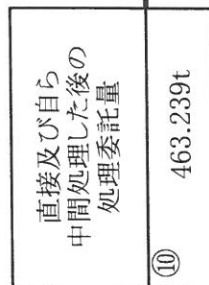 直接及び自ら
中間処理した後の
処理委託量
⑩
463.239t